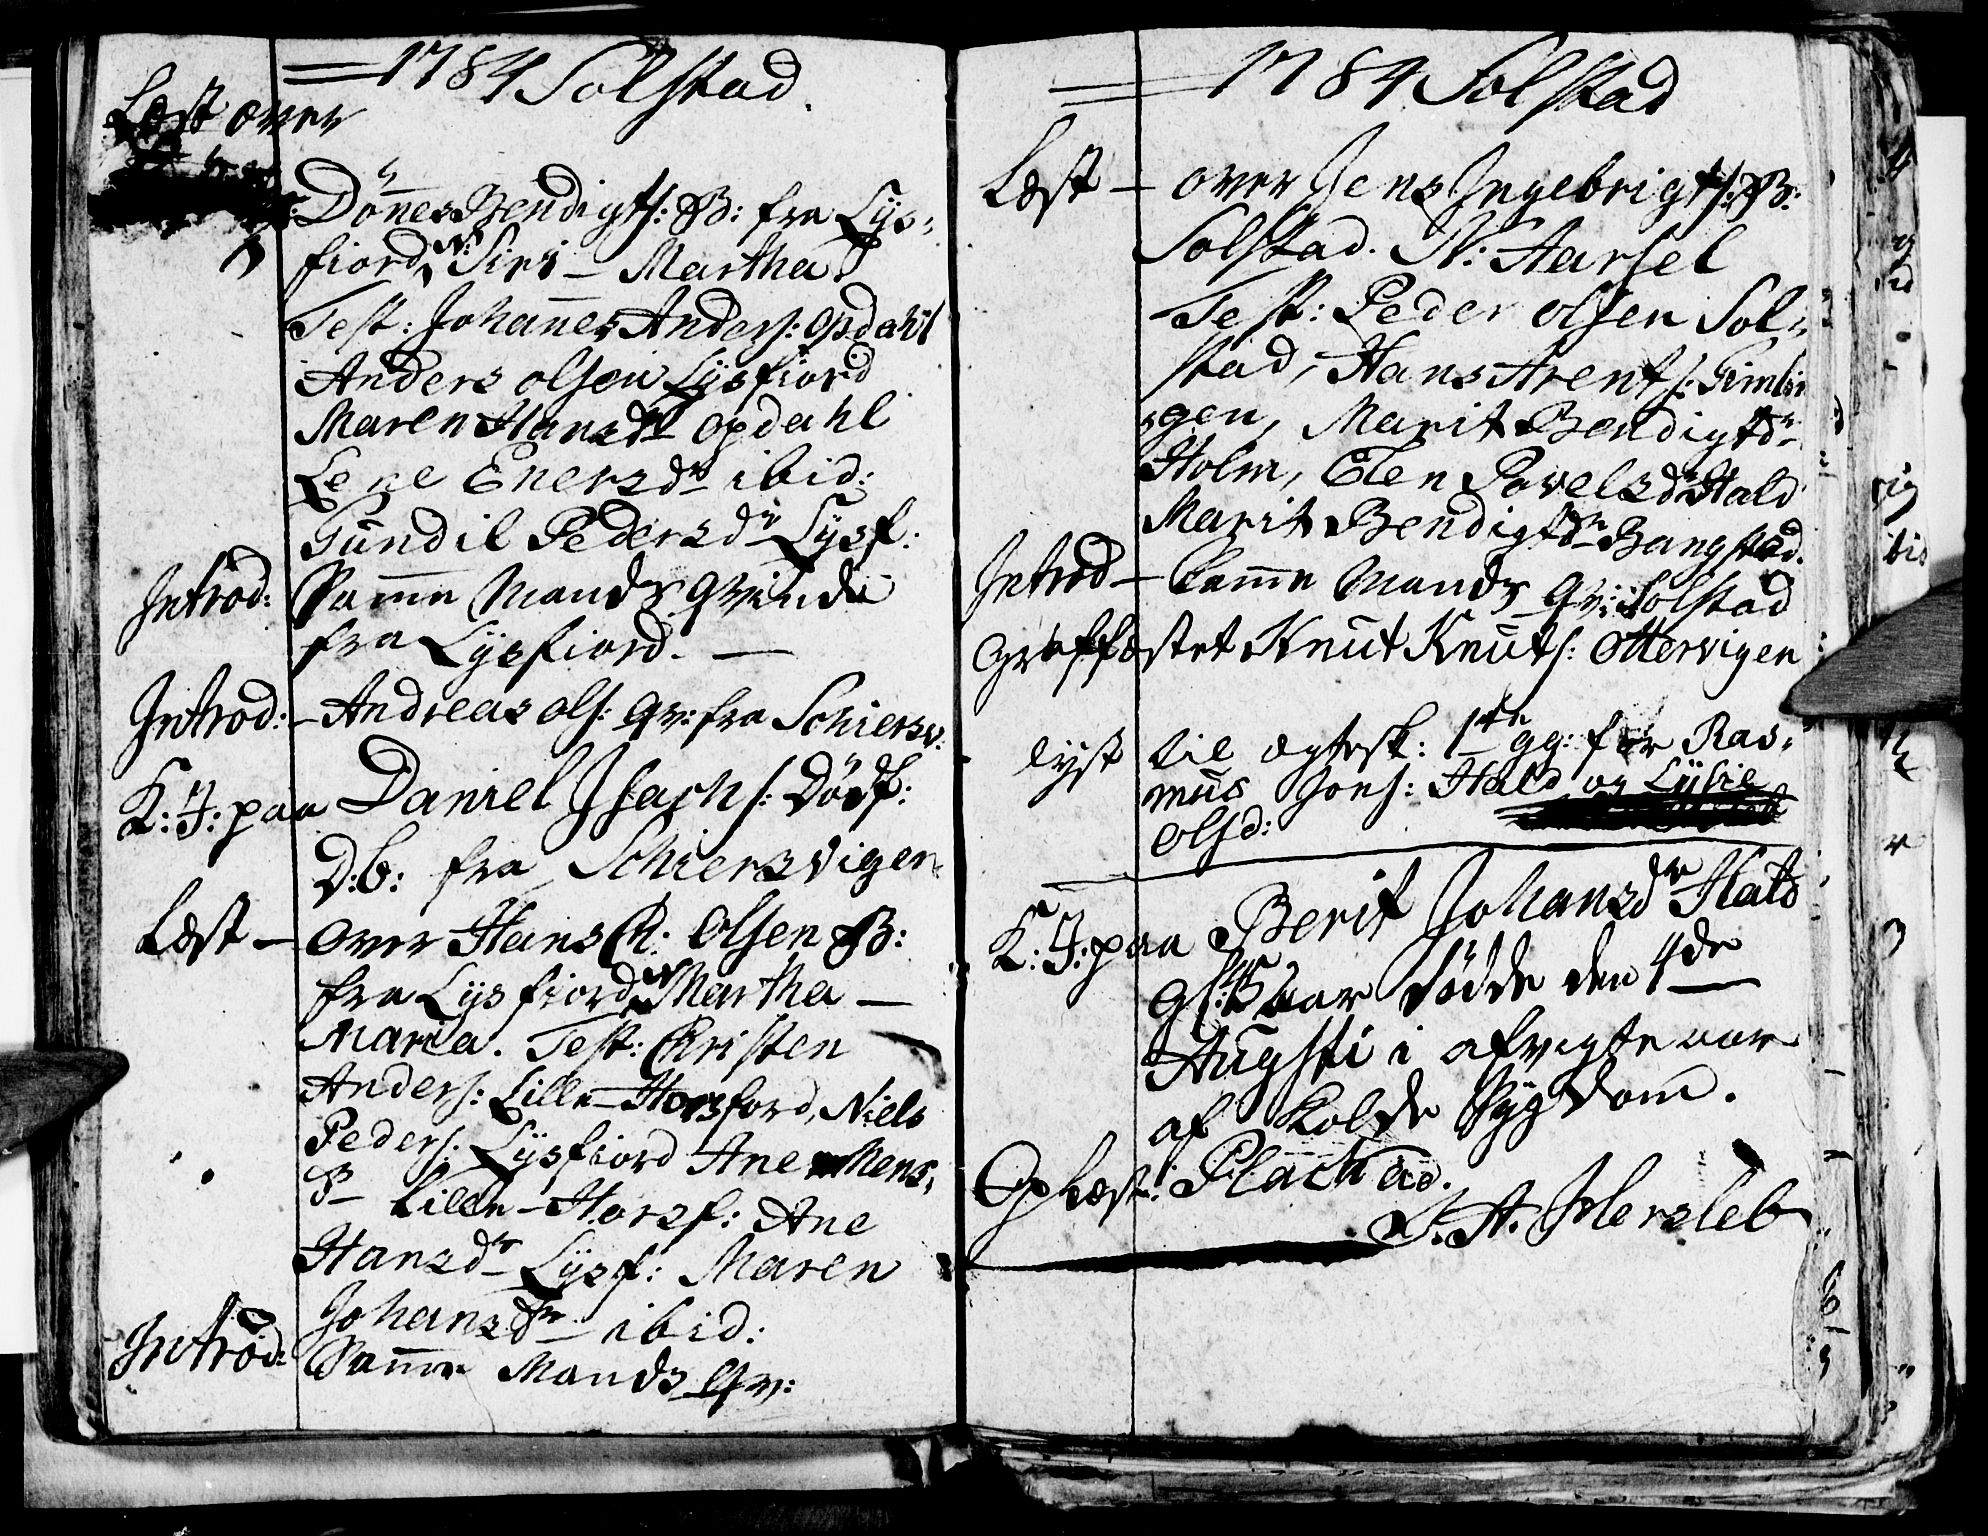 1784 Solstad.
Læst over
Dönnes Bendigts: B: fra Lys-
fiord, N: Siri - Martha
Test: Johannes Anders: Opdahl
Anders olsen Lysfiord
Maren Hansdr opdahl
Lene Enersdr ibid:
Gundil Pedersdr Lysf:
Introd: Samme Mands Qvinde
fra Lysfiord. —
Introd: - Andreas ols: Qv: fra Schiersv:
K: J: paa Daniel Isachs: Dödf:
D:b: fra Schiersvigen
Læst - over Hans Ch: Olsen B:
fra Lysfiord N: Martha —
Maria. Test: Christen
Anders: Lille-Horsford, Niels
Peders: Lysfiord Ane Mens-
dr Lille-Horsf: Ane
Hansdr Lysf: Maren
Johansdr ibid:
Introd: Samme Mands Qv:
1784 Solstad
Læst - over Jens Ingebrigts: B:
Solstad. N: Aarsel
Test: Peder olsen Sol-
stad, Hans Arents:
gen, Marit Bendigtdr
Holm, Elen Povelsdr Hald
Marit Bendigtdr Bangstad.
Introd - Samme Mands Qv: Solstad
Graffæstet Knut Knuts: Ottervigen
lyst til ægtesk: 1te gg: for Ras-
mus Jons: Hald og Lysie
Olsd:
K: J: paa Berit Johansdr Hald
gl: aar døde den 4de
Augsti i afvigte aar
af Kolde Sygdom.
Oplæst: Plackad.
J. A. Hersleb